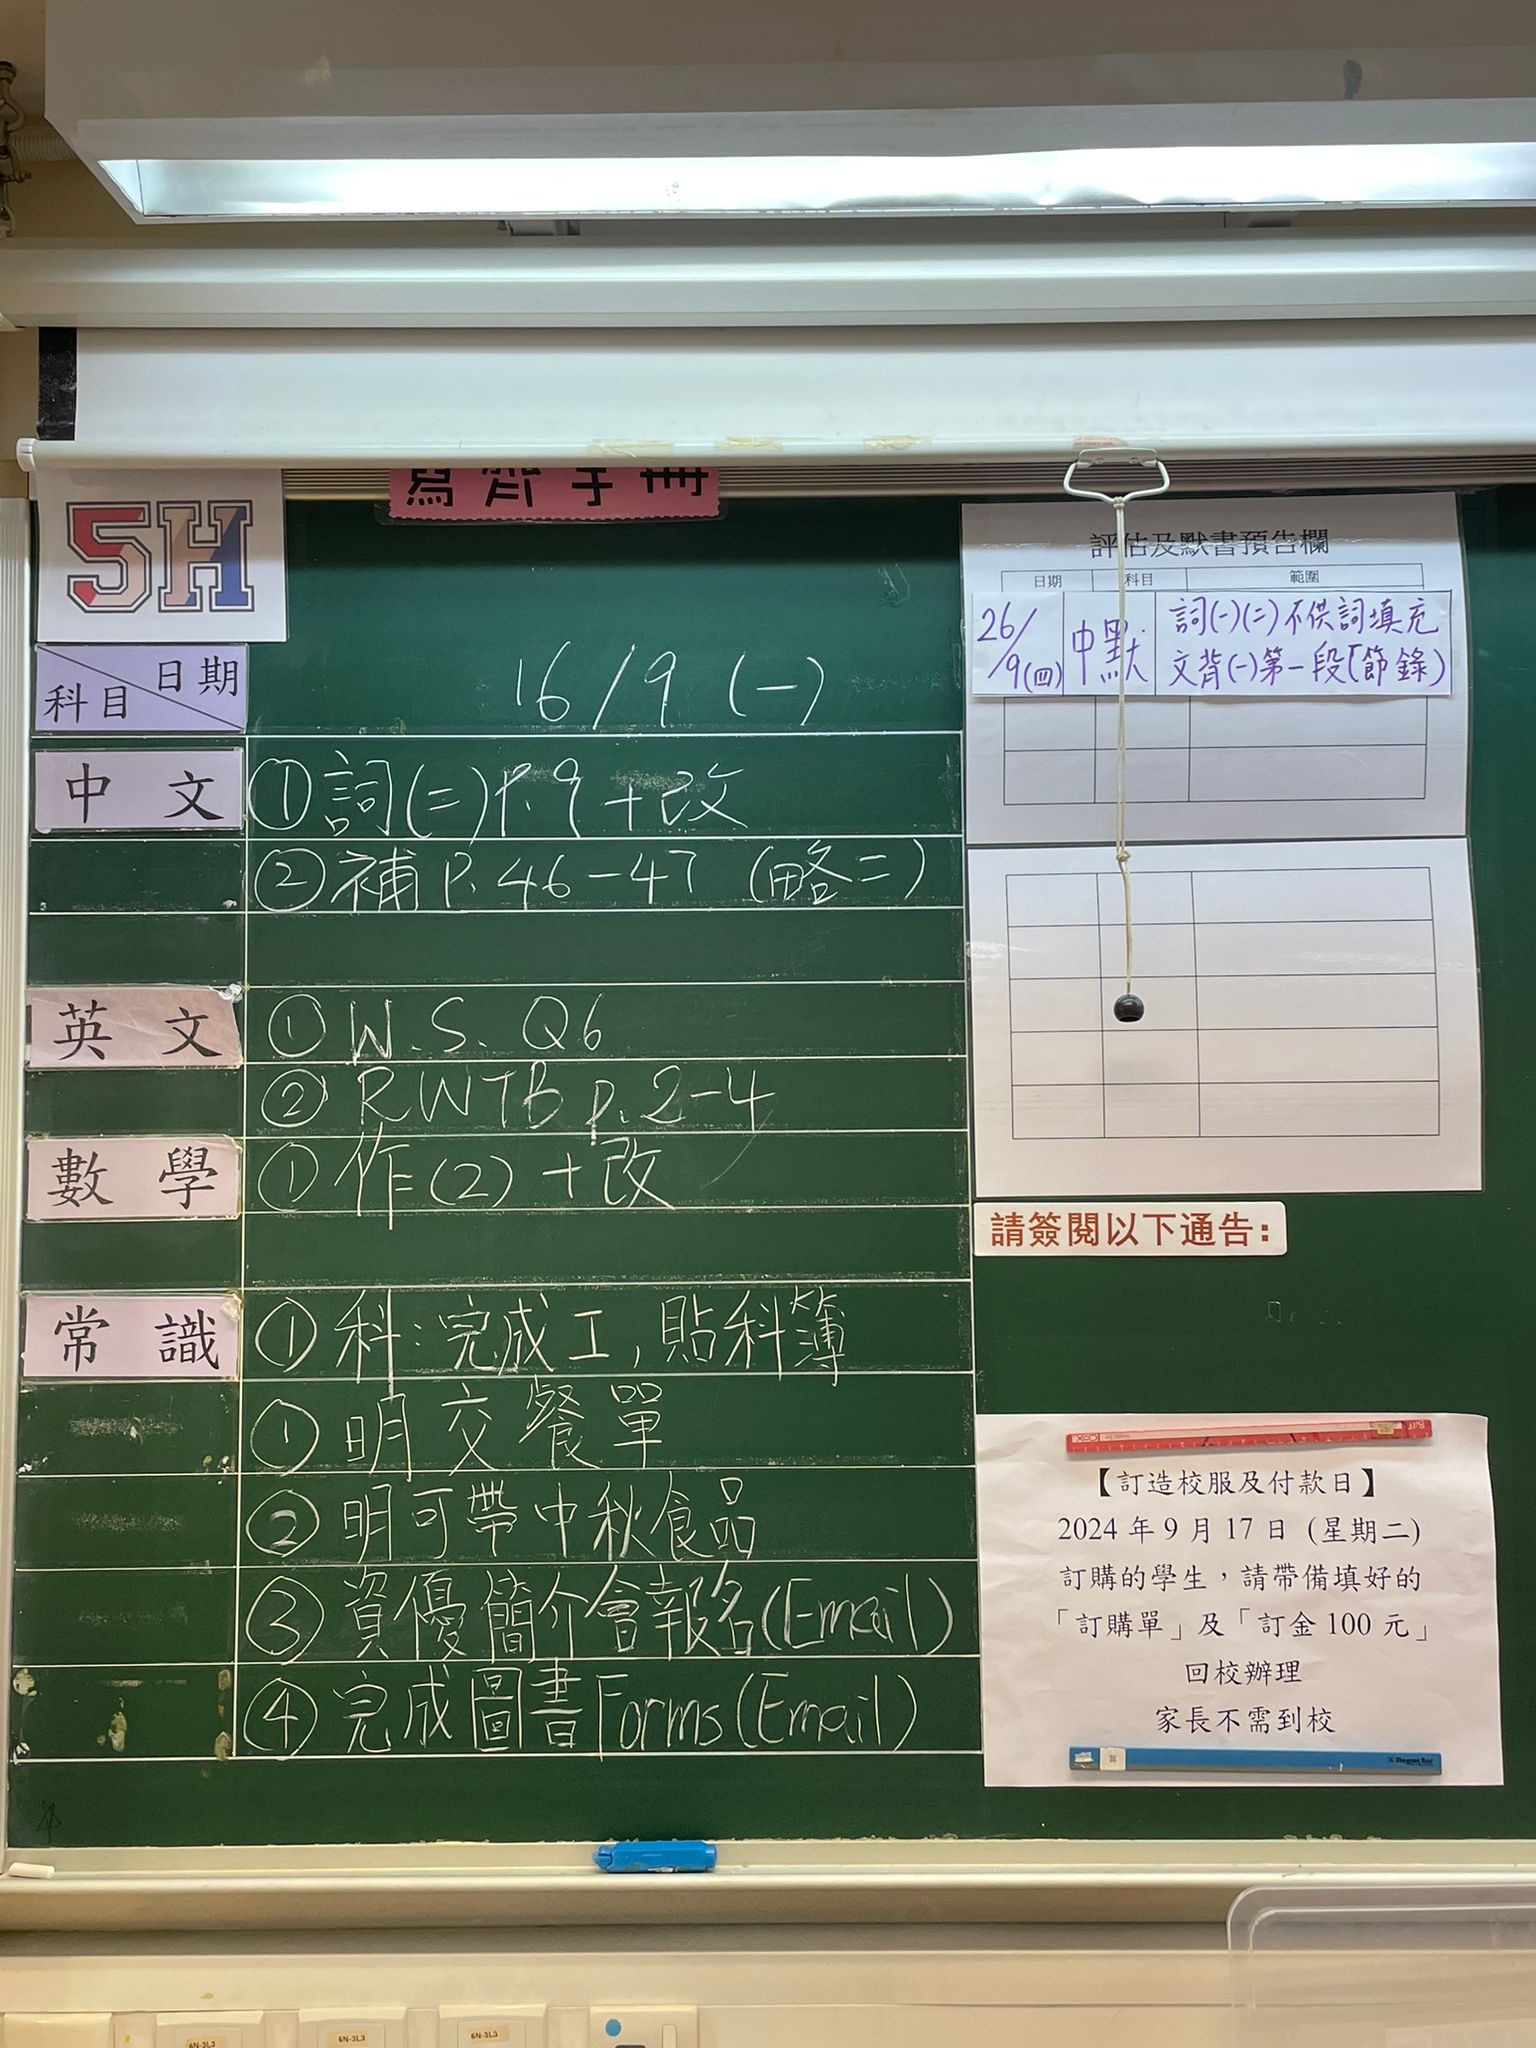 寫齊手冊
5H
日期
科目
16/9 (一)
中文
①詞(二)P.9+改
②補P.46-47 (略二)
英文
①W.S. Q6
②RWTB p.2-4
數學
①作(2)+改
常識
①科:完成工,貼科簿
①明交餐單
②明可帶中秋食品
③資優簡介會報名(Email)
④完成圖書Forms(Email)
評估及默書預告欄
日期 科目 範圍
26/9(四) 中默 詞(一)(二)不供詞填充
文背(一)第一段「節錄)
請簽閱以下通告:
【訂造校服及付款日】
2024年9月17日 (星期二)
訂購的學生,請帶備填好的
「訂購單」及「訂金100元」
回校辦理
家長不需到校
6N-3L3
6N-3L3
6N-3L3